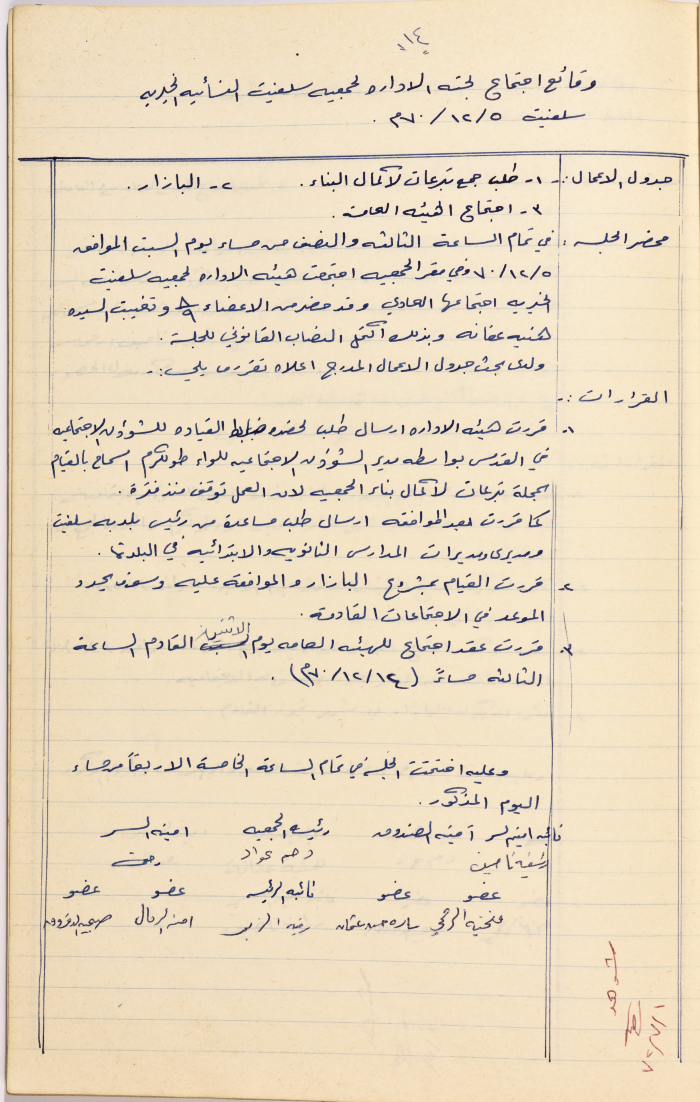 ١٤
وقائع اجتماع لجنه الاداره لجمعيه سلفيت النسائيه الخيريه
سلفيت ٧٠/١٢/٥م.
جدول الاعمال :- ١- طلب جمع تبرعات لاكمال البناء. ٢- البازار.
٣- اجتماع الهيئه العامه.
محضر الجلسه : في تمام الساعة الثالثه والنصف من مساء يوم السبت الموافق
٧٠/١٢/٥ وفي مقر الجمعيه اجتمعت هيئه الاداره لجمعيه سلفيت
الخيريه اجتماعها العادي وقد حضر من الاعضاء ٨/٩ وتغيبت السيده
هنيه عفانه وبذلك اكتمل النصاب القانوني للجلسة.
ولدى بحث جدول الاعمال المدرج اعلاه تقرر ما يلي :-
القرارات :-
١- قررت هيئه الاداره ارسال طلب لحضره ضابط القياده للشؤون الاجتماعيه
في القدس بواسطه مدير الشؤون الاجتماعيه للواء طولكرم السماح بالقيام
بحملة تبرعات لاكمال بناء الجمعيه لان العمل توقف منذ فترة.
كما قررت بعد الموافقه ارسال طلب مساعدة من رئيس بلديه سلفيت
ومديري ومديرات المدارس الثانويه والابتدائيه في البلدة.
٢- قررت القيام بمشروع البازار والموافقة عليه وسوف يحدد
الموعد في الاجتماعات القادمة.
٣- قررت عقد اجتماع للهيئه العامه يوم السبت الاثنين القادم الساعة
الثالثه مساءً (٧٠/١٢/١٤م).
وعليه اختتمت الجلسه في تمام الساعة الخامسة الا ربعاً من مساء
اليوم المذكور.
نائبه امينه السر امينه الصندوق رئيسه الجمعيه امينه السر
عواد
عضو عضو نائبه الرئيسه عضو عضو
فتحيه ساره حسن عثمان رفيه امنه
شوهد
٧١/٧/١